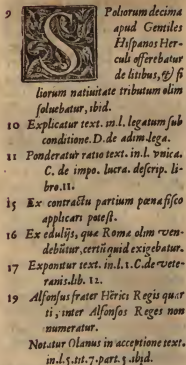 9 SPoliorum decima
apud Gentiles
Hispanos Her-
culi offerebatur
de litibus, & si
liorum natiuitate tributum olim
soluebatur, ibid.
10 Explicatur text. in l. legatum sub
conditione. D. de adim. lega.
11 Ponderatur ratio text. in l. vnica.
C. de impo. lucra. descrip. li-
bro. 11.
15 Ex contractu partium pœna fisco
applicari potest.
16 Ex edulijs, quæ Romæ olim ven-
debãtur, certũ quid exigebatur.
17 Exponitur text. in l. 1. C. de vete-
ranis. lib. 12.
19 Alfonsus frater Hẽrici Regis quar
ti, inter Alfonsos Reges non
numeratur.
Notatur Olanus in acceptione text.
in l. 5. tit. 7. part. 5. ibid.